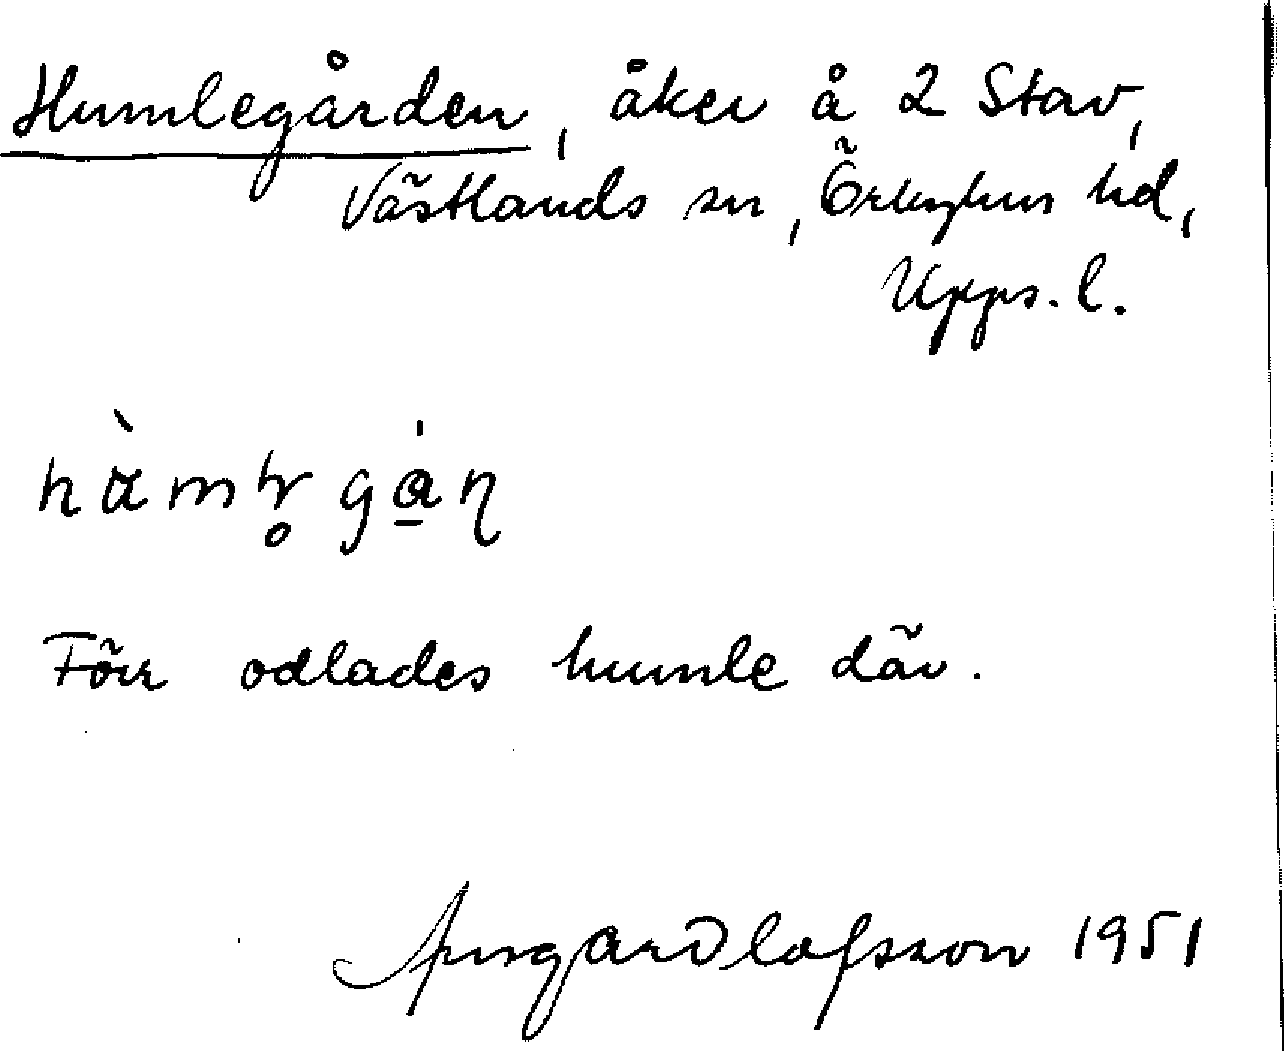 Humlegården, åker å 2 Stav,
Västlands sn, Örbyhus hd,
Upps. l.
Förr odlades humle där.
Ansgar Olofsson 1951